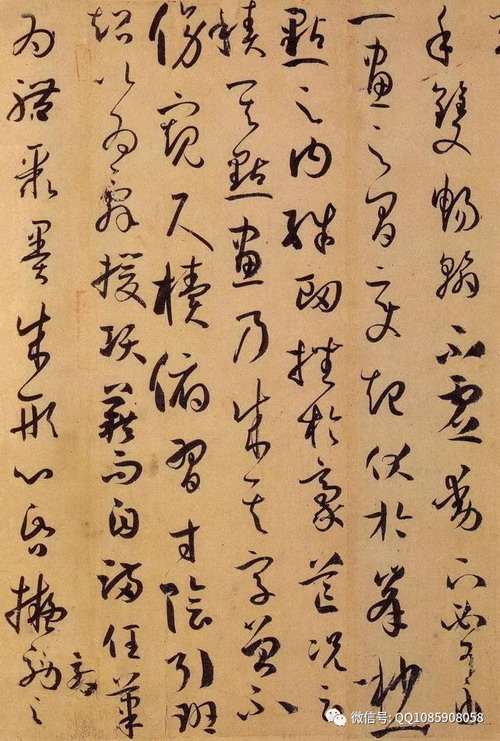 手雙暢翰不虛動下必有由
一畫之間變起伏於峯杪一
點之內殊衄挫於豪芒況云
積其點畫乃成其字曾不
傍窺尺櫝俯習寸陰引班
超以為辭援項籍而自滿任筆
為體聚墨成形心昏擬效之
微信号: QQ1085908058